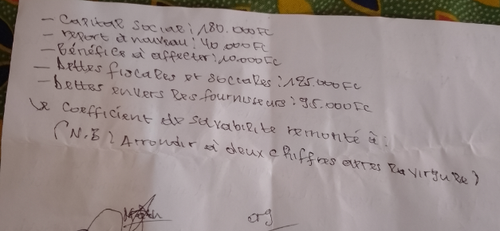 - Capital social : 180.000FC
- report à nouveau : 40.000FC
- Bénéfice à affecter : 10.000FC
- Dettes fiscales et sociales : 125.000FC
- Dettes envers les fournisseurs : 95.000FC
Le coefficient de solvabilité remonté à :
(N.B : Arrondir à deux chiffres après la virgule)